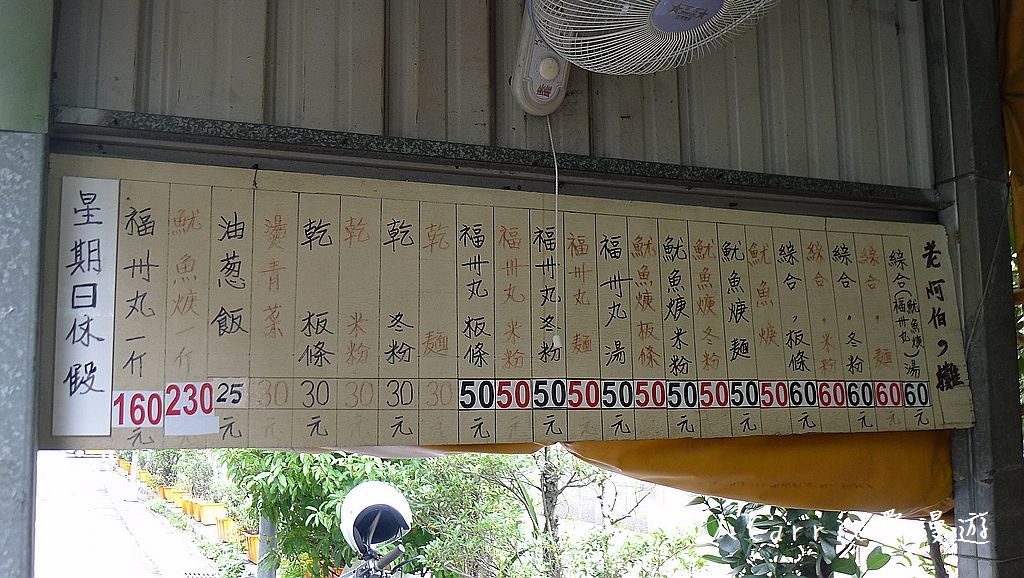 老阿伯ㄉ攤
綜合(魷魚焿福州丸)湯 60元
綜合,麵 60元
綜合,冬粉 60元
綜合,米粉 60元
綜合,板條 60元
魷魚焿 50元
魷魚焿麵 50元
魷魚焿冬粉 50元
魷魚焿米粉 50元
魷魚焿板條 50元
福卅丸湯 50元
福卅丸麵 50元
福卅丸冬粉 50元
福卅丸米粉 50元
福卅丸板條 50元
乾麵 30元
乾冬粉 30元
乾米粉 30元
乾板條 30元
燙青菜 30元
油葱飯 25元
魷魚焿一斤 230
福卅丸一斤 160元
星期日休假